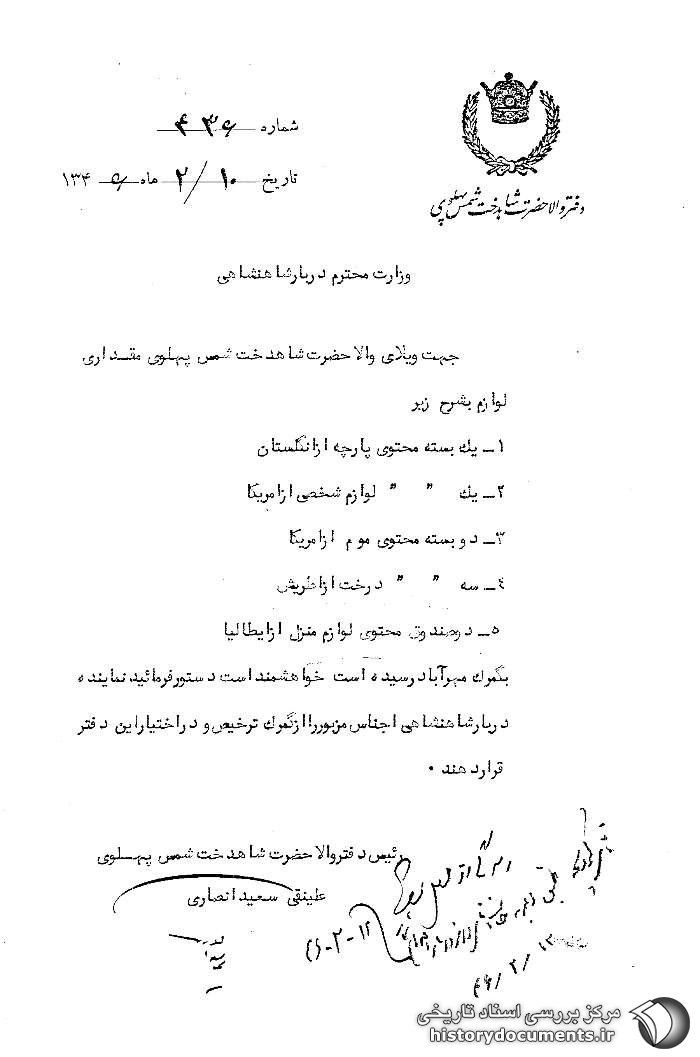 شماره ۴۳۶
تاریخ ۱۰/۲ ماه ۱۳۴۶
دفتر والاحضرت شاهدخت شمس پهلوی
وزارت محترم دربار شاهنشاهی
جهت ویلای والاحضرت شاهدخت شمس پهلوی مقداری
لوازم بشرح زیر
۱ـ یک بسته محتوی پارچه از انگلستان
۲ـ یک " " لوازم شخصی از امریکا
۳ـ دو بسته محتوی موم از امریکا
۴ـ سه " " درخت از اطریش
۵ـ دو صندوق محتوی لوازم منزل از ایطالیا
بگمرک مهرآباد رسیده است خواهشمند است دستور فرمائید نماینده
دربار شاهنشاهی اجناس مزبور را از گمرک ترخیص و در اختیار این دفتر
قرار دهند .
رئیس دفتر والاحضرت شاهدخت شمس پهلوی
علینقی سعید انصاری
۱۲-۲-
۱۳/۲/۴۶
مرکز بررسی اسناد تاریخی
historydocuments.ir